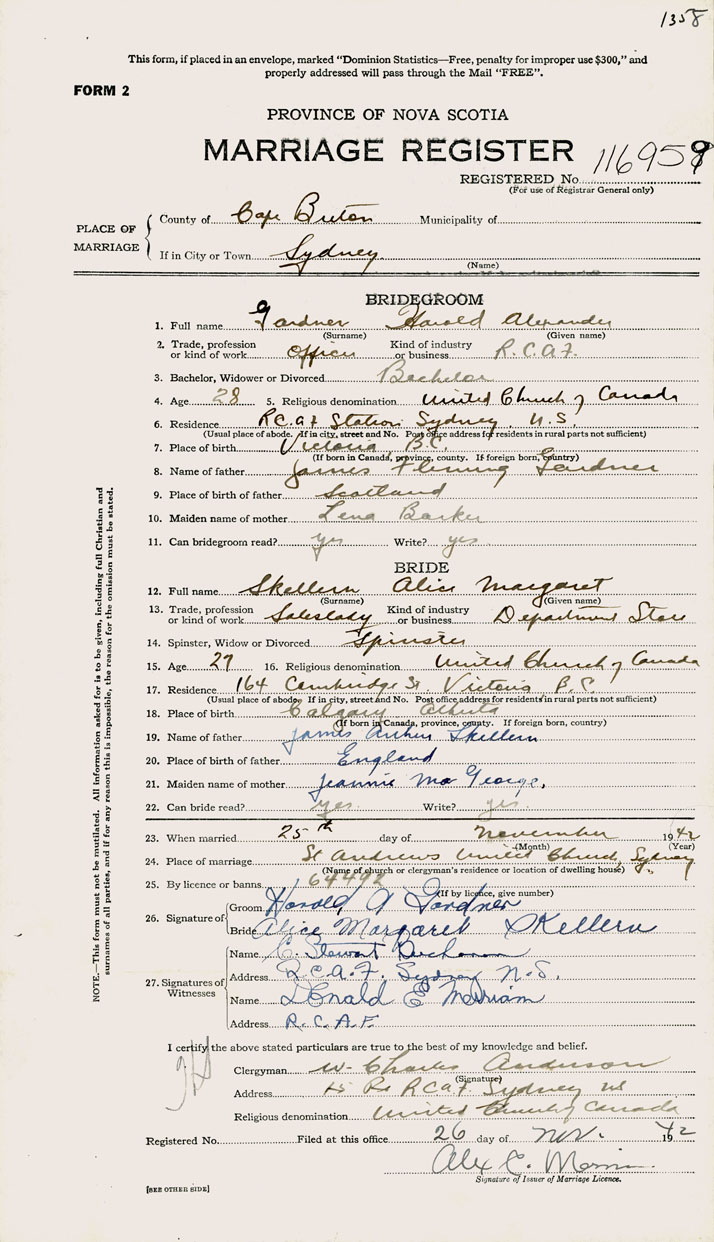 1358
This form, if placed in an envelope, marked "Dominion Statistics—Free, penalty for improper use $300," and
properly addressed will pass through the Mail "FREE".
FORM 2
PROVINCE OF NOVA SCOTIA
MARRIAGE REGISTER
REGISTERED No. 116959
(For use of Registrar General only)
PLACE OF MARRIAGE
County of Cape Breton Municipality of
If in City or Town Sydney
(Name)
BRIDEGROOM
1. Full name Gardner Harold Alexander
(Surname) (Given name)
2. Trade, profession or kind of work Officer Kind of industry or business R.C.A.F.
3. Bachelor, Widower or Divorced Bachelor
4. Age 28 5. Religious denomination United Church of Canada
6. Residence R.C.A.F. Station Sydney, N.S.
(Usual place of abode. If in city, street and No. Post office address for residents in rural parts not sufficient)
7. Place of birth Victoria B.C.
(If born in Canada, province, county. If foreign born, country)
8. Name of father James Fleming Gardner
9. Place of birth of father Scotland
10. Maiden name of mother Lena Barker
11. Can bridegroom read? yes Write? yes
BRIDE
12. Full name Skellern Alice Margaret
(Surname) (Given name)
13. Trade, profession or kind of work Saleslady Kind of industry or business Department Store
14. Spinster, Widow or Divorced Spinster
15. Age 27 16. Religious denomination United Church of Canada
17. Residence 164 Cambridge St Victoria B.C.
(Usual place of abode. If in city, street and No. Post office address for residents in rural parts not sufficient)
18. Place of birth Calgary Alberta
(If born in Canada, province, county. If foreign born, country)
19. Name of father James Arthur Skellern
20. Place of birth of father England
21. Maiden name of mother Jeannie George,
22. Can bride read? yes Write? yes
23. When married 25th day of November 1942
(Month) (Year)
24. Place of marriage St Andrews United Church, Sydney
(Name of church or clergyman's residence or location of dwelling house)
25. By licence or banns 64492
(If by licence, give number)
26. Signature of
Groom Harold A Gardner
Bride Alice Margaret Skellern
27. Signatures of Witnesses
Name C. Stewart Buchanan
Address R.C.A.F. Sydney N.S.
Name Donald E Merriam
Address R.C.A.F.
I certify the above stated particulars are true to the best of my knowledge and belief.
Clergyman W. Charles Anderson
(Signature)
Address RCAF Sydney NS
Religious denomination United Church of Canada
Registered No. Filed at this office 26 day of Nov. 1942
Alex C.
Signature of Issuer of Marriage Licence.
[SEE OTHER SIDE]
NOTE.—This form must not be mutilated. All information asked for is to be given, including full Christian and
surnames of all parties, and if for any reason this is impossible, the reason for the omission must be stated.